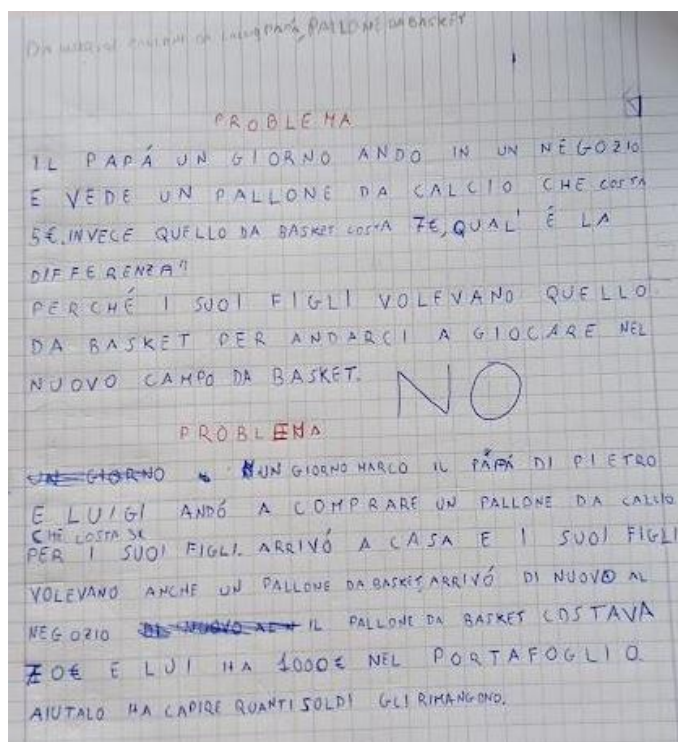 PALLONE DA BASKET
PROBLEMA
IL PAPÁ UN GIORNO ANDO IN UN NEGOZIO
E VEDE UN PALLONE DA CALCIO CHE COSTA
5€. INVECE QUELLO DA BASKET COSTA 7€, QUAL' É LA
DIFFERENZA?
PERCHÉ I SUOI FIGLI VOLEVANO QUELLO
DA BASKET PER ANDARCI A GIOCARE NEL
NUOVO CAMPO DA BASKET.
NO
PROBLEMA
UN GIORNO UN GIORNO MARCO IL PÁPÁ DI PIETRO
E LUIGI ANDÓ A COMPRARE UN PALLONE DA CALCIO
CHE COSTA 5€
PER I SUOI FIGLI. ARRIVÓ A CASA E I SUOI FIGLI
VOLEVANO ANCHE UN PALLONE DA BASKET, ARRIVÓ DI NUOVO AL
NEGOZIO DI NUOVO IL PALLONE DA BASKET COSTAVA
70€ E LUI HA 1000€ NEL PORTAFOGLIO.
AIUTALO HA CAPIRE QUANTI SOLDI GLI RIMANGONO.